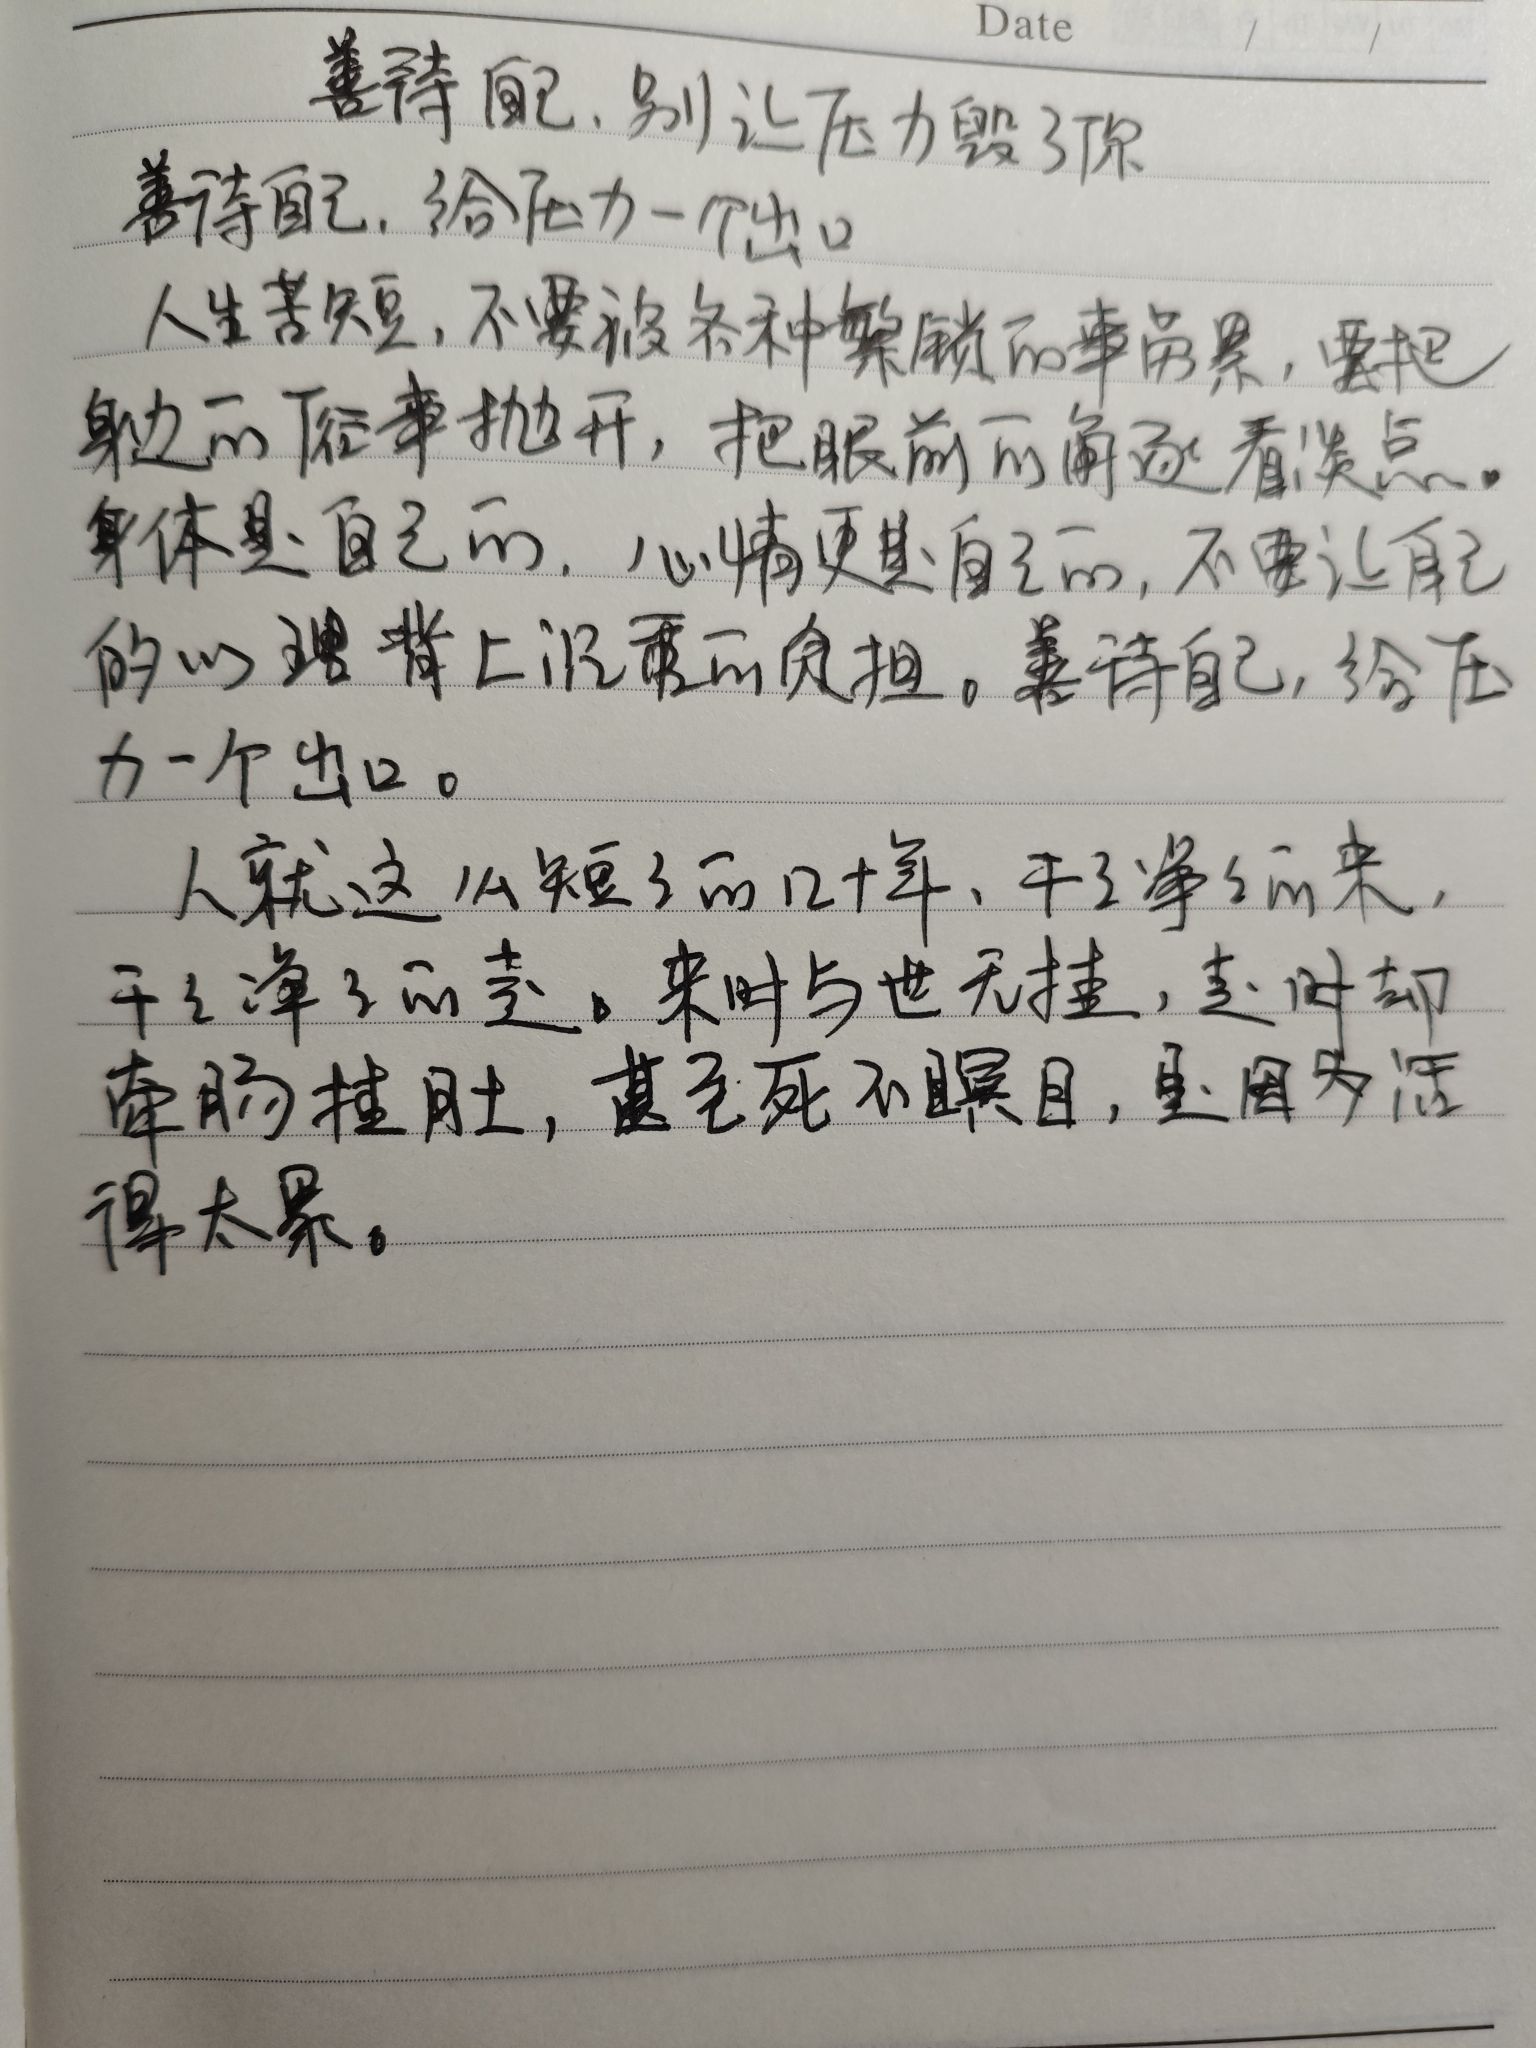 Date / /
善待自己、别让压力毁了你
善待自己,给压力一个出口
人生苦短,不要被各种繁锁的事所累,要把
身边的俗事抛开,把眼前的角逐看淡点。
身体是自己的,心情更是自己的,不要让自己
的心理背上沉重的负担。善待自己,给压
力一个出口。
人就这么短了的几十年、干了净了的来,
干了净了的走。来时与世无挂,走时却
牵肠挂肚,甚至死不瞑目,是因为活
得太累。